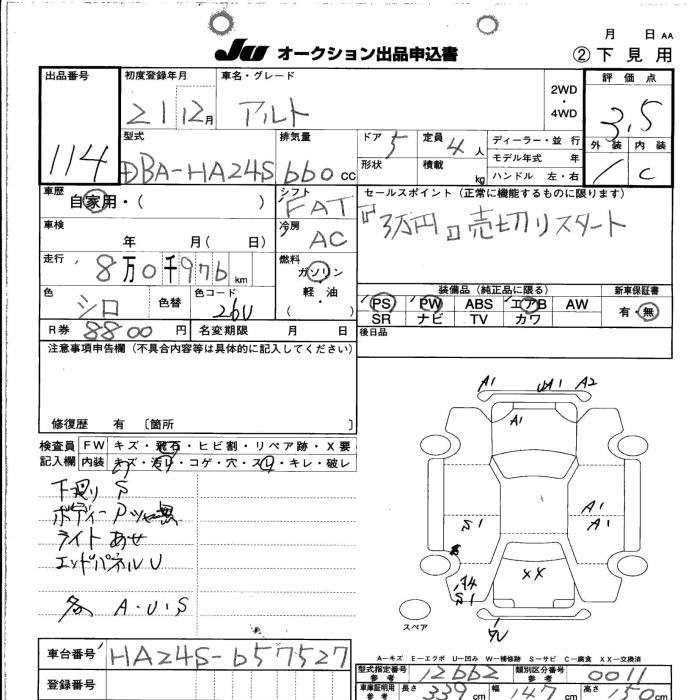 月 日 AA
JU オークション出品申込書 ②下見用
出品番号 初度登録年月 車名・グレード 評価点
114 21 12月 アルト 2WD・4WD 3.5
型式 排気量 ドア 5 定員 4人 ディーラー・並行 外装 内装
DBA-HA24S 660cc 形状 積載 kg モデル年式 年 1 C
ハンドル 左・右
車歴 自家用・( ) シフト FAT セールスポイント(正常に機能するものに限ります)
車検 年 月( 日) 冷房 AC 『3万円』売切りスタート
走行 8万0千976km 燃料 ガソリン
軽・油
( )
色 シロ 色替 色コード 26U
装備品(純正品に限る) 新車保証書
PS PW ABS エアB AW 有・無
SR ナビ TV カワ
R券 8800円 名変期限 月 日 後日品
注意事項申告欄(不具合内容等は具体的に記入してください)
修復歴 有 〔箇所 〕
検査員 FW キズ・飛石・ヒビ割・リペア跡・X要
記入欄 内装 キズ・汚レ・コゲ・穴・スレ・キレ・破レ
下廻り S
ボディー
ライト
エンドパネルU
A・U・S
A1 A2
A1
A1
S1 A1
XX
A4
S1
スペア
A-キズ E-エクボ U-凹み W-補修跡 S-サビ C-腐食 XX-交換済
車台番号 HA24S-657527
型式指定番号 参考 12662 類別区分番号 参考 0011
登録番号
車庫証明用 参考 長さ 339cm 幅 147cm 高さ 150cm